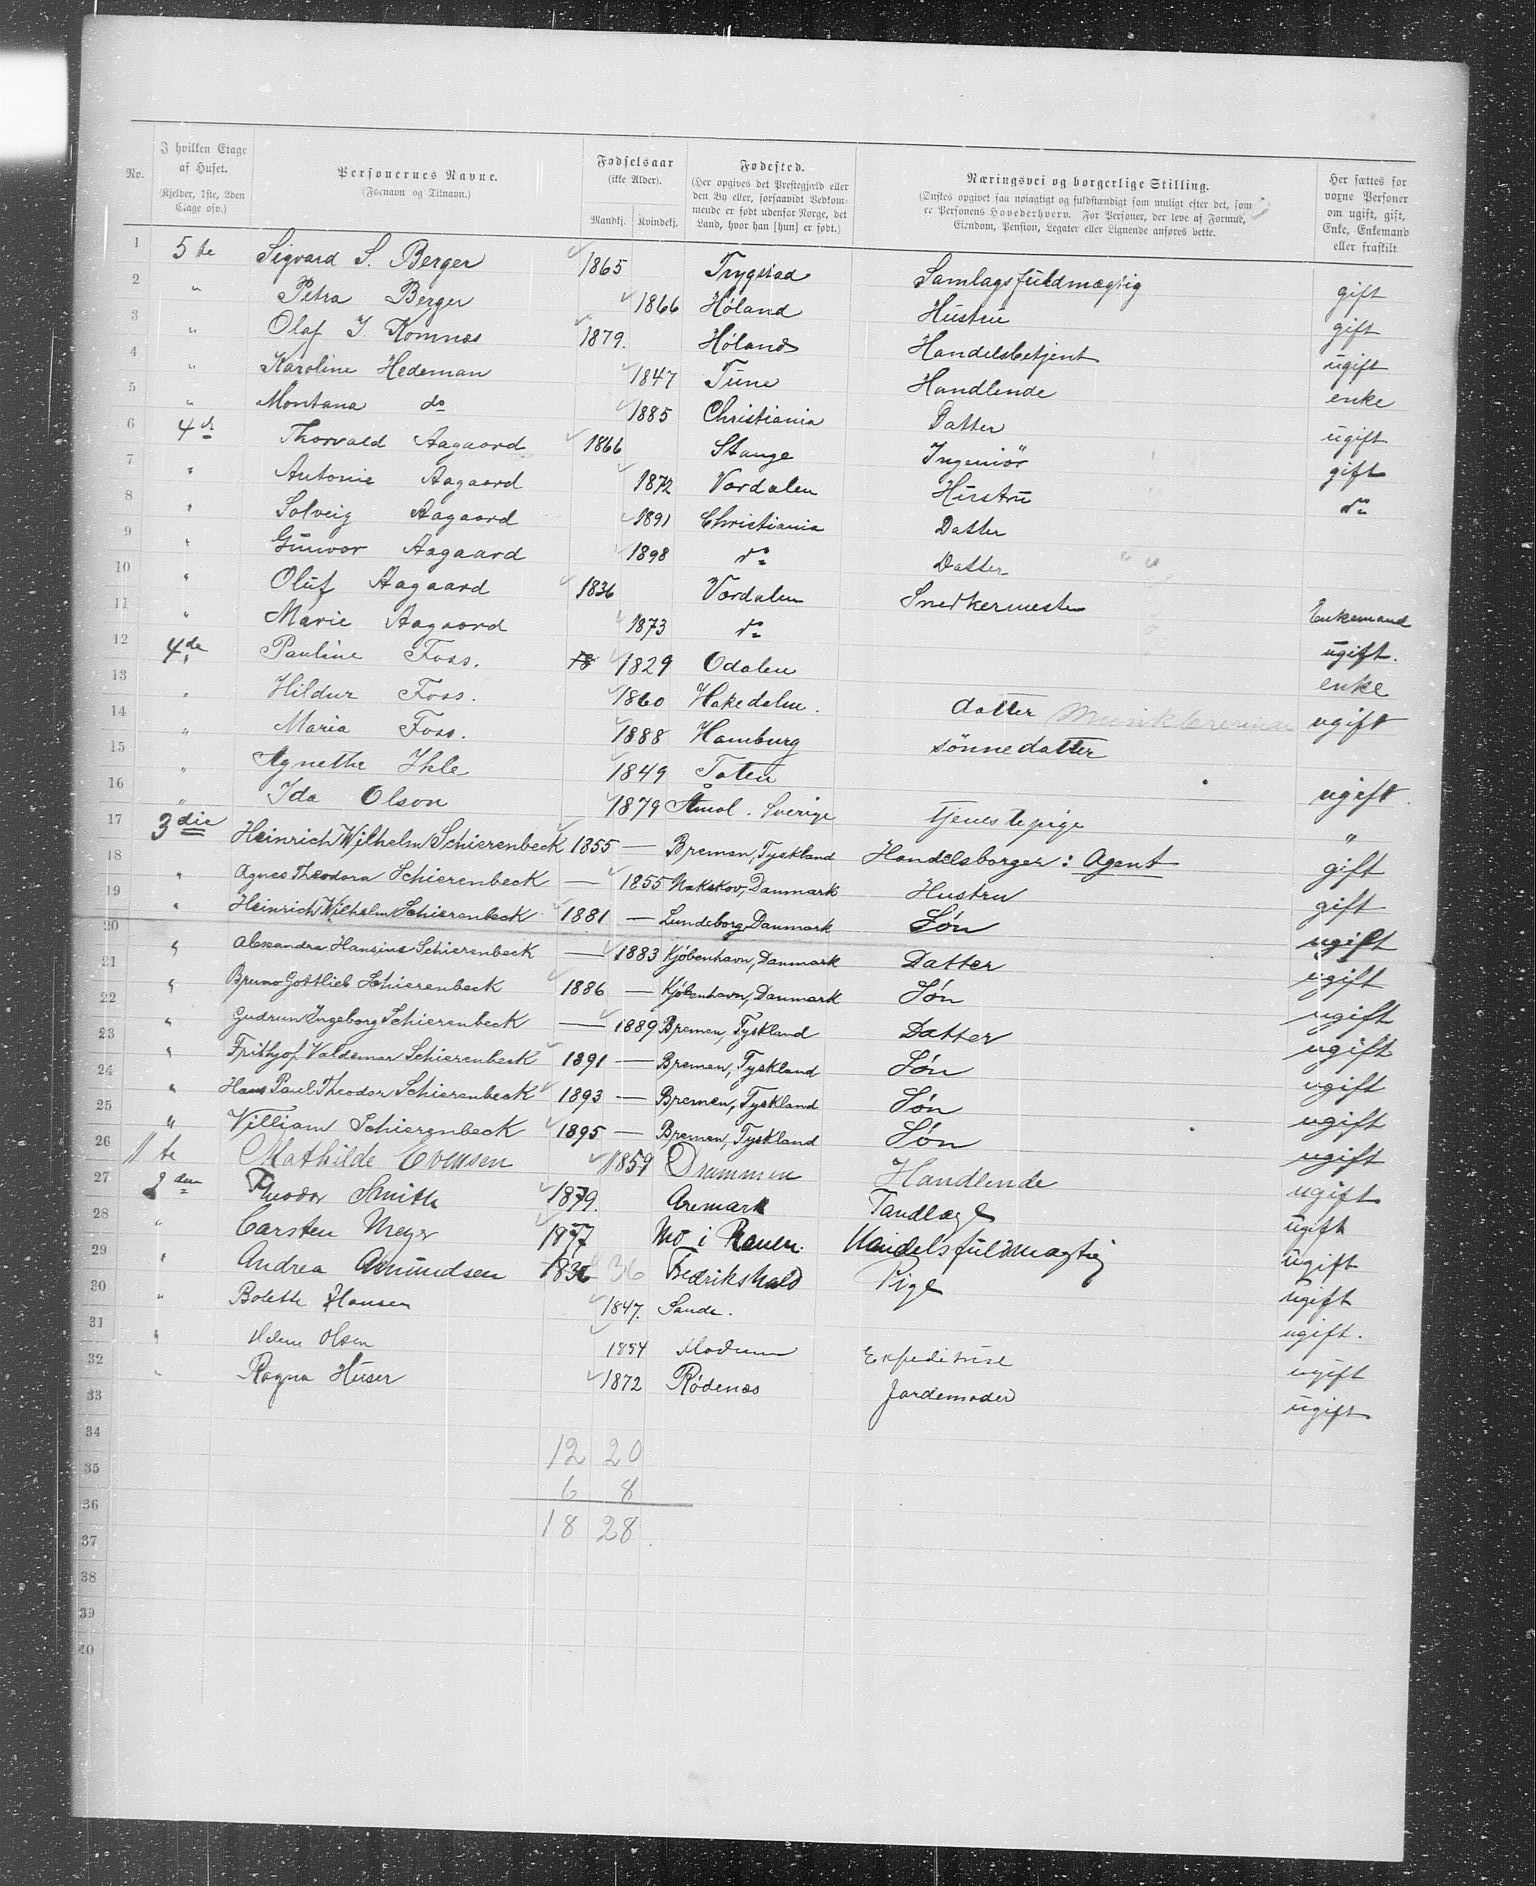 No. | I hvilken Etage af Huset. (Kjelder, 1ste, 2den Etage osv.) | Personernes Navne. (Fornavn og Tilnavn.) | Fødselsaar (ikke Alder). Mandkj. Kvindekj. | Fødested. (Her opgives det Prestegjæld eller den By eller, forsaavidt Vedkommende er født udenfor Norge, det Land, hvor han [hun] er født.) | Næringsvei og borgerlige Stilling. (Ønskes opgivet saa nøiagtigt og fuldstændigt som muligt efter det, som er Personens Hovederhverv. For Personer, der leve af Formue, Eiendom, Pension, Legater eller Lignende anføres dette.) | Her sættes for voxne Personer om ugift, gift, Enke, Enkemand eller fraskilt
1 5te Sigvard S. Berger 1865 Trygstad Samlagsfuldmægtig gift
2 " Petra Berger 1866 Høland Hustru gift
3 " Olaf J. Komnæs 1879. Høland Handelsbetjent ugift
4 " Karoline Hedeman 1847 Tune Handlende enke
5 " Montana do 1885 Christiania Datter ugift
6 4de Thorvald Aagaard 1866 Stange Ingeniör gift
7 " Antonie Aagaard 1872 Værdalen Hustru do
8 " Solveig Aagaard 1891 Christiania Datter
9 " Gunvor Aagaard 1898 do Datter
10 " Oluf Aagaard 1836 Værdalen Snedkermester Enkemand
11 " Marie Aagaard 1873 do ugift.
12 4de Pauline Foss. 18 1829 Odalen enke
13 " Hildur Foss. 1860 Hakedalen. datter Musiklærerinde ugift
14 " Maria Foss. 1888 Hamburg sønnedatter
15 " Agnethe Ihle 1849 Toten ugift.
16 " Ida Olson 1879 Åmol. Sverige tjenestepige "
17 3die Heinrich Wilhelm Schierenbeck 1855 — Bremen, Tyskland Handelsborger: Agent gift
18 " Agnes Theodora Schierenbeck — 1855 Nakskov, Danmark Hustru gift
19 " Heinrich Wilhelm Schierenbeck 1881 — Lundeborg, Danmark Søn ugift
20 " Alexandra Hansine Schierenbeck — 1883 Kjøbenhavn, Danmark Datter ugift
21 " Bruno Gottlieb Schierenbeck 1886 — Kjøbenhavn, Danmark Søn ugift
22 " Gudrun Ingeborg Schierenbeck — 1889 Bremen, Tyskland Datter ugift
23 " Frithjof Valdemar Schierenbeck 1891 — Bremen, Tyskland Søn ugift
24 " Hans Paul Theodor Schierenbeck 1893 — Bremen, Tyskland Søn ugift
25 " William Schierenbeck 1895 — Bremen, Tyskland Søn ugift
26 1te Mathilde Evensen 1859 Drammen Handlende ugift
27 2den Theodor Smith 1879. Aremark Tandlæge ugift
28 " Carsten Meyer 1877 Mo i Ranen. Handelsfuldmægtig ugift
29 " Andrea Amundsen 1836 36 Fredrikshald Pige ugift
30 " Bolette Hansen 1847. Sande. ugift.
31 " Helene Olsen 1854 Modum Expeditrise ugift
32 " Ragna Huser 1872 Rødenæs Jordemoder ugift
33
34
35 12 20
36 6 8
37 18 28
38
39
40